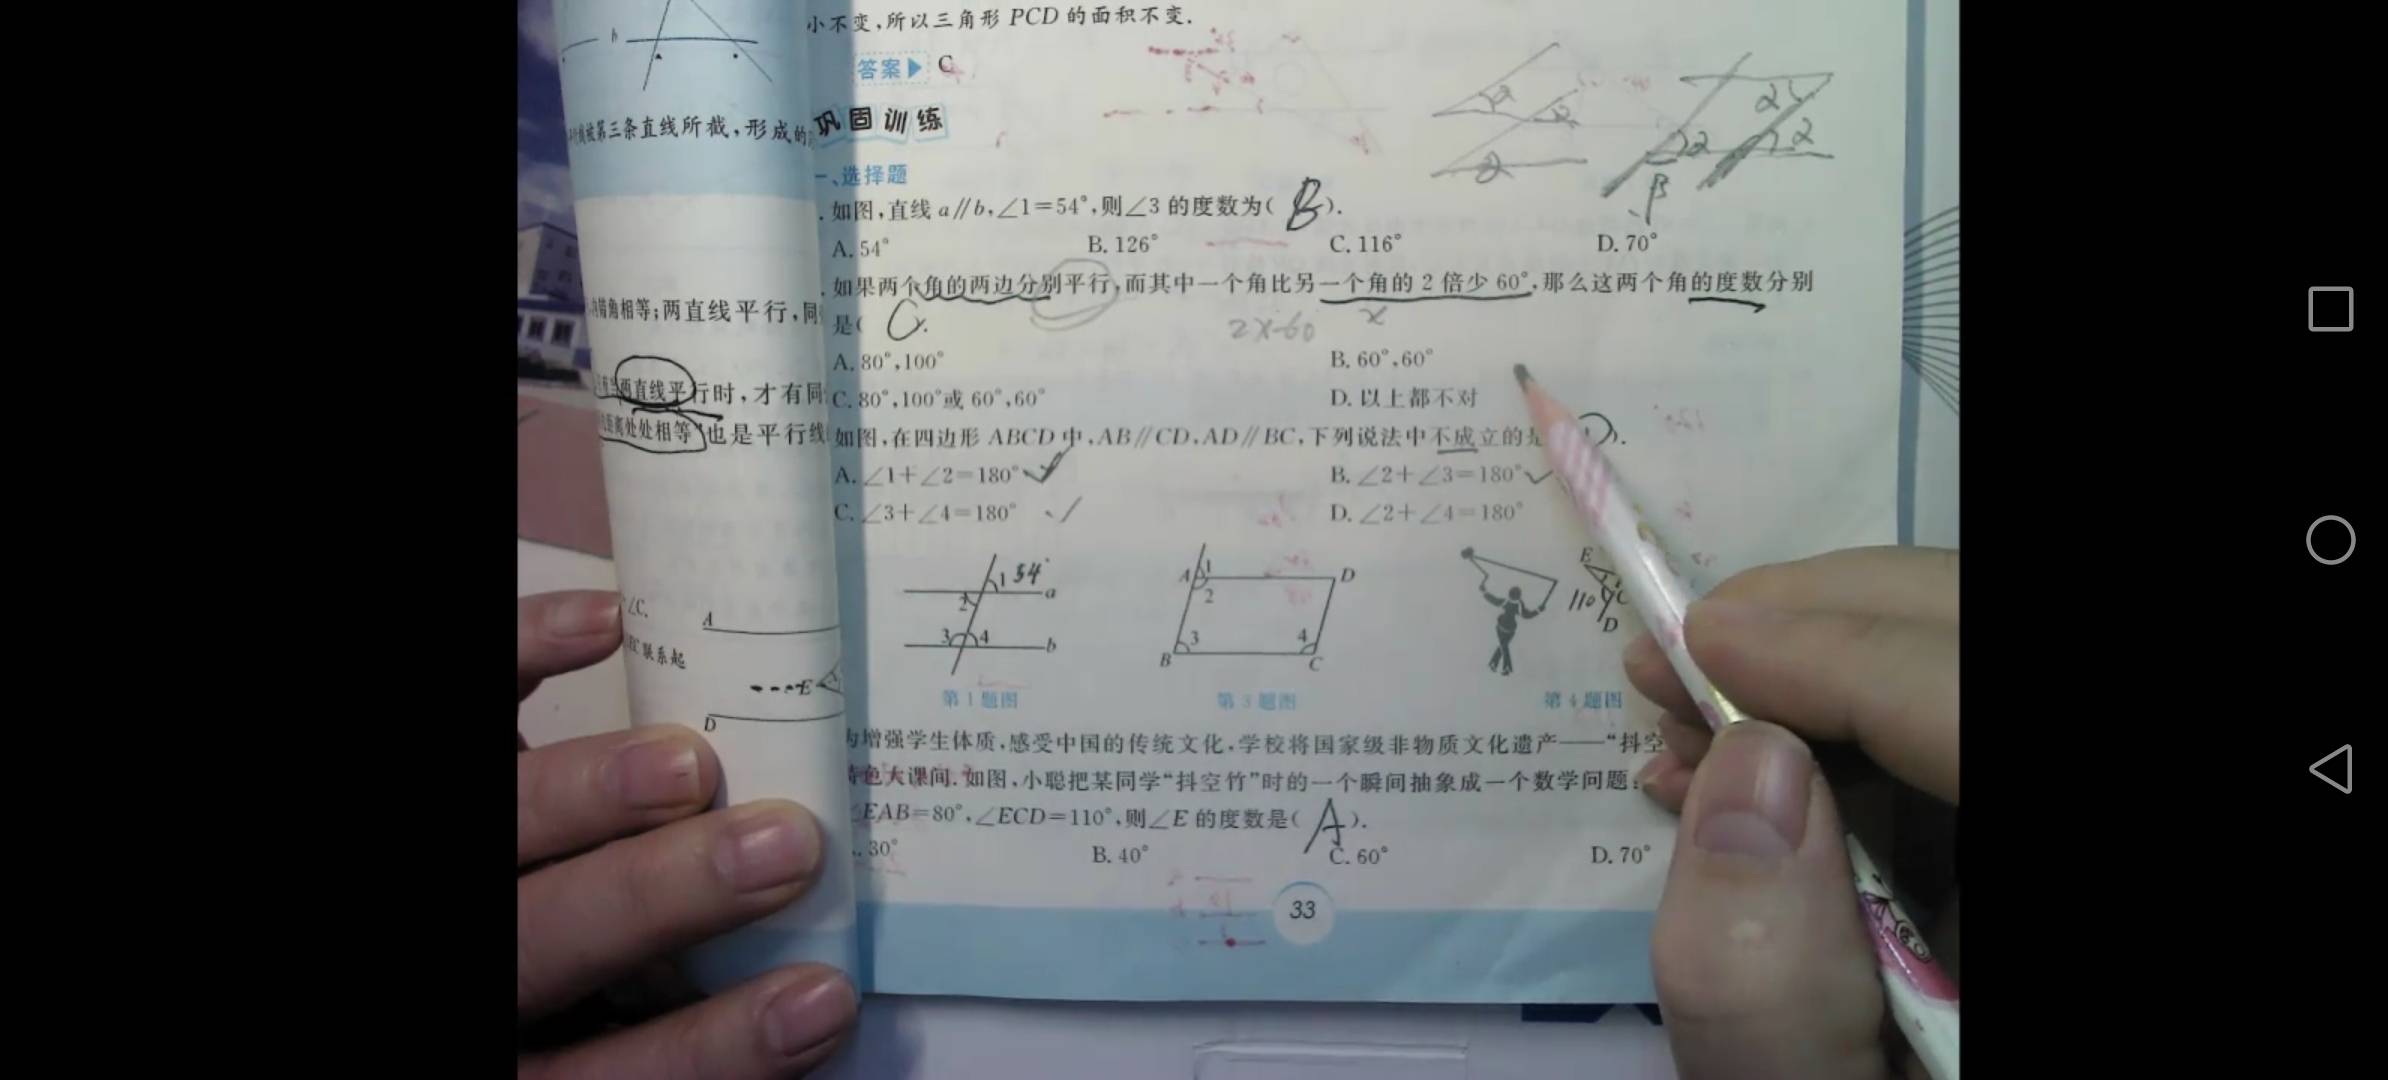 小不变,所以三角形PCD的面积不变.
答案▶ C
b
被第三条直线所截,形成的
巩固训练
一、选择题
α
α
α
α
α
α
β
.如图,直线a∥b,∠1=54°,则∠3的度数为( B ).
A.54° B.126° C.116° D.70°
.如果两个角的两边分别平行,而其中一个角比另一个角的2倍少60°,那么这两个角的度数分别
是( C ).
2x-60 x
内错角相等;两直线平行,同
A.80°,100° B.60°,60°
两直线平行时,才有同
C.80°,100°或60°,60° D.以上都不对
距离处处相等”也是平行线
如图,在四边形ABCD中,AB∥CD,AD∥BC,下列说法中不成立的是 ).
A.∠1+∠2=180° ✓ B.∠2+∠3=180° ✓
C.∠3+∠4=180° ✓ D.∠2+∠4=180°
1 54° a
2
3 4 b
第1题图
A 1 D
2
3 4
B C
第3题图
E
110° C
D
第4题图
∠C.
A
联系起
E
D
为增强学生体质,感受中国的传统文化,学校将国家级非物质文化遗产——“抖空
特色大课间.如图,小聪把某同学“抖空竹”时的一个瞬间抽象成一个数学问题:
∠EAB=80°,∠ECD=110°,则∠E的度数是( A ).
. 30° B.40° C.60° D.70°
33